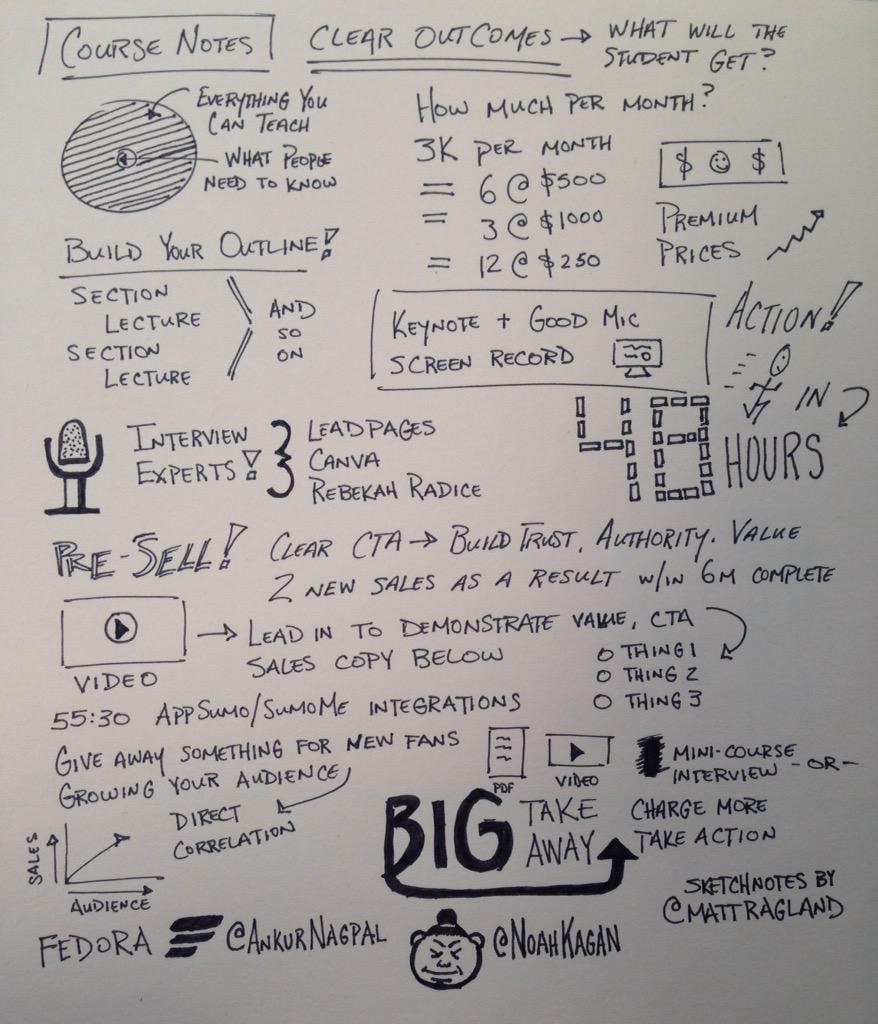 COURSE NOTES
CLEAR OUTCOMES → WHAT WILL THE
STUDENT GET?
EVERYTHING YOU
CAN TEACH
WHAT PEOPLE
NEED TO KNOW
HOW MUCH PER MONTH?
3K PER MONTH
= 6 @ $500
= 3 @ $1000
= 12 @ $250
$ $
PREMIUM
PRICES
BUILD YOUR OUTLINE!
SECTION
LECTURE
SECTION
LECTURE
AND
SO
ON
KEYNOTE + GOOD MIC
SCREEN RECORD
ACTION!
IN
48
HOURS
INTERVIEW
EXPERTS!
LEADPAGES
CANVA
REBEKAH RADICE
PRE-SELL!
CLEAR CTA → BUILD TRUST, AUTHORITY. VALUE
2 NEW SALES AS A RESULT W/IN 6M COMPLETE
VIDEO
→ LEAD IN TO DEMONSTRATE VALUE, CTA
SALES COPY BELOW
O THING 1
O THING 2
O THING 3
55:30 APPSUMO/SUMOME INTEGRATIONS
GIVE AWAY SOMETHING FOR NEW FANS
GROWING YOUR AUDIENCE
PDF
VIDEO
MINI-COURSE
INTERVIEW -OR-
DIRECT
CORRELATION
SALES
AUDIENCE
BIG TAKE
AWAY
CHARGE MORE
TAKE ACTION
SKETCHNOTES BY
@MATTRAGLAND
FEDORA @ANKURNAGPAL @NOAHKAGAN